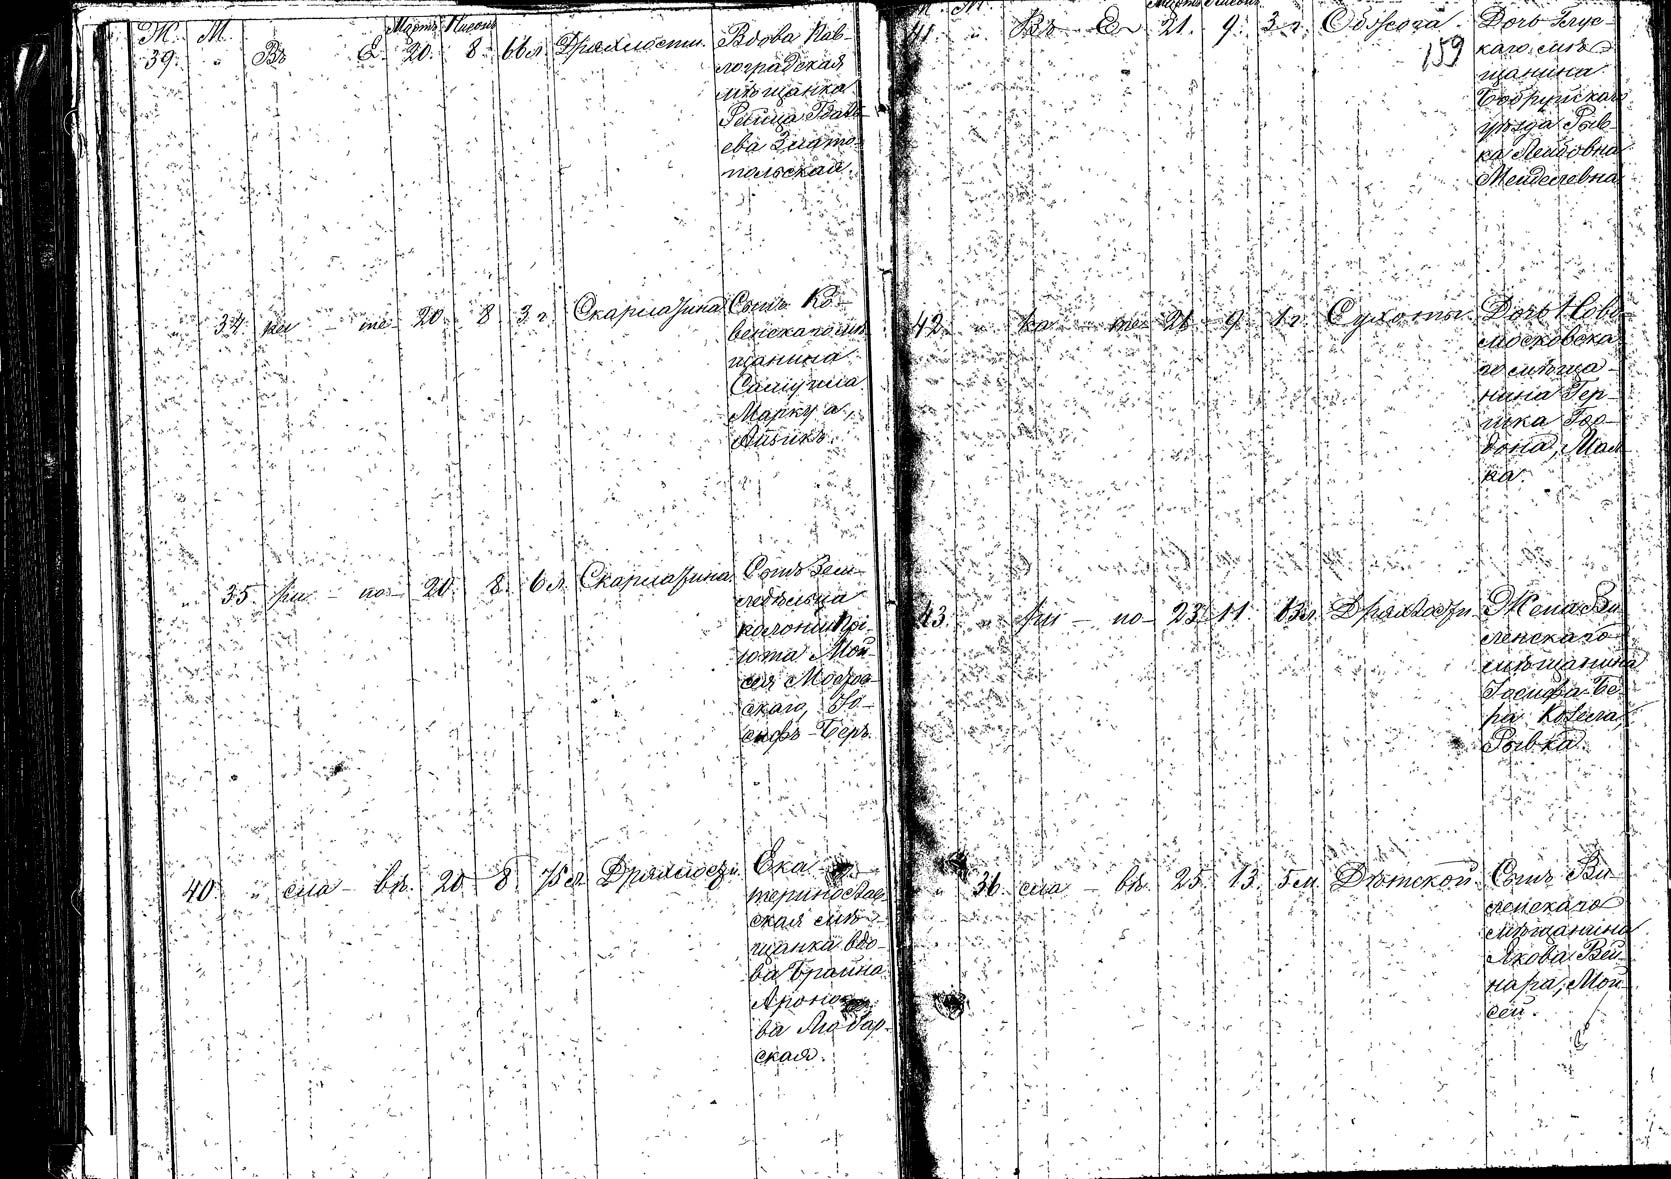 Ж. М. Мартъ Нисонъ
39. " Въ Е 20. 8. 66 л. Дряхлости. Вдова Пав-
лоградская
мѣщанка
Гдаль-
ева Злато-
польская.
" 34 ки - те- 20. 8 3 г. Скарлатина Сынъ Ко-
венскаго мѣ
щанина
Самуила
Маркуа,
Айзикъ.
" 35. ри - но- 20. 8. 6 л. Скарлатина Сынъ Зем-
ледѣльца
колоніи Прі-
юта Мои
сея
скаго, Іо-
сифъ-Беръ.
40. " сла - въ. 20 8 75 л. Дряхлости. Ека
теринослав-
ская мѣ-
щанка вдо-
ва Брайна
Ароно
ва Любар-
ская.
Мартъ Нисонъ
41. " Въ Е 21. 9. 3 г. Отъ Дочь Глус-
159
каго мѣ-
щанина
Бобруйскаго
уѣзда Рыв-
ка Лейбовна
Менделевна
42. " ка - те- 21 - 9. 1 г. Сухоты. Дочь Ново-
московска
го мѣща-
нина Гер-
шка Гор-
дона, Мал
ка.
43. " ри - но- 23. 11. 63 л. Дряхлости. Жена Ви
ленскаго
мѣщанина
Іосифа Бе-
ра
Рывка.
" 36. сла - въ. 25. 13. 5 м. Дѣтской. Сынъ Ви
ленскаго
мѣщанина
Якова Вей-
нара, Мои
сей.